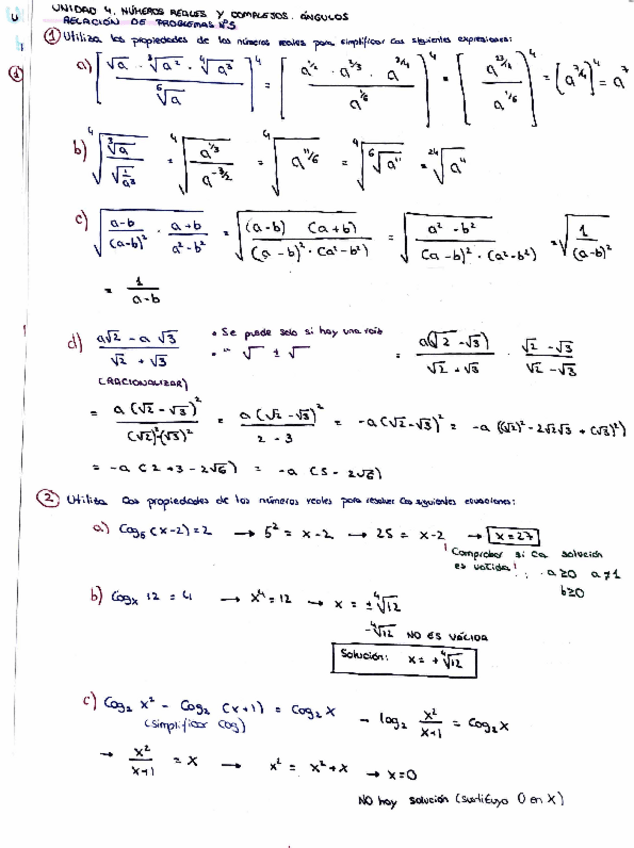 UNIDAD 4. NÚMEROS REALES Y COMPLEJOS. ÁNGULOS
RELACIÓN DE PROBLEMAS Nº5
① Utiliza las propiedades de los números reales para simplificar las siguientes expresiones:
a) [√a · ³√a² · ⁴√a³ / ⁶√a]⁴ = [a^1/2 · a^2/3 · a^3/4 / a^1/6]⁴ = [a^23/12 / a^1/6]⁴ = [a^7/4]⁴ = a⁷
b) ⁴√(³√a / √(1/a³)) = ⁴√(a^1/3 / a^-3/2) = ⁴√(a^11/6) = ⁴√(⁶√a¹¹) = ²⁴√a¹¹
c) √((a-b)/(a-b)² · (a+b)/(a²-b²)) = √((a-b) (a+b) / (a-b)² · (a²-b²)) = √(a²-b² / (a-b)² · (a²-b²)) = √(1/(a-b)²)
= 1/(a-b)
d) (a√2 - a√3)/(√2 + √3) • Se puede solo si hay una raíz • " √ ± √ = a(√2 - √3)/(√2 + √3) · (√2 - √3)/(√2 - √3)
(RACIONALIZAR)
= a(√2 - √3)² / (√2)²-(√3)² = a(√2 - √3)² / 2 - 3 = -a(√2 - √3)² = -a((√2)² - 2√2√3 + (√3)²)
= -a(2 + 3 - 2√6) = -a(5 - 2√6)
② Utiliza las propiedades de los números reales para resolver las siguientes ecuaciones:
a) log₅(x-2) = 2 → 5² = x-2 → 25 = x-2 → x = 27
! Comprobar si la solución
es válida! : a≥0 a≠1
b≥0
b) logₓ 12 = 4 → x⁴ = 12 → x = ±⁴√12
-⁴√12 NO ES VÁLIDA
Solución: x = +⁴√12
c) log₂ x² - log₂ (x+1) = log₂ x → log₂ x²/(x+1) = log₂ x
(simplificar log)
→ x²/(x+1) = x → x² = x² + x → x = 0
NO hay solución (sustituyo 0 en x)